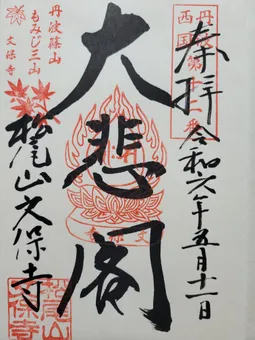 奉拝
令和六年五月十一日
丹波
西国第十一番
大悲閣
丹波篠山
もみじ三山
文保寺
松尾山文保寺
松尾山
文保寺